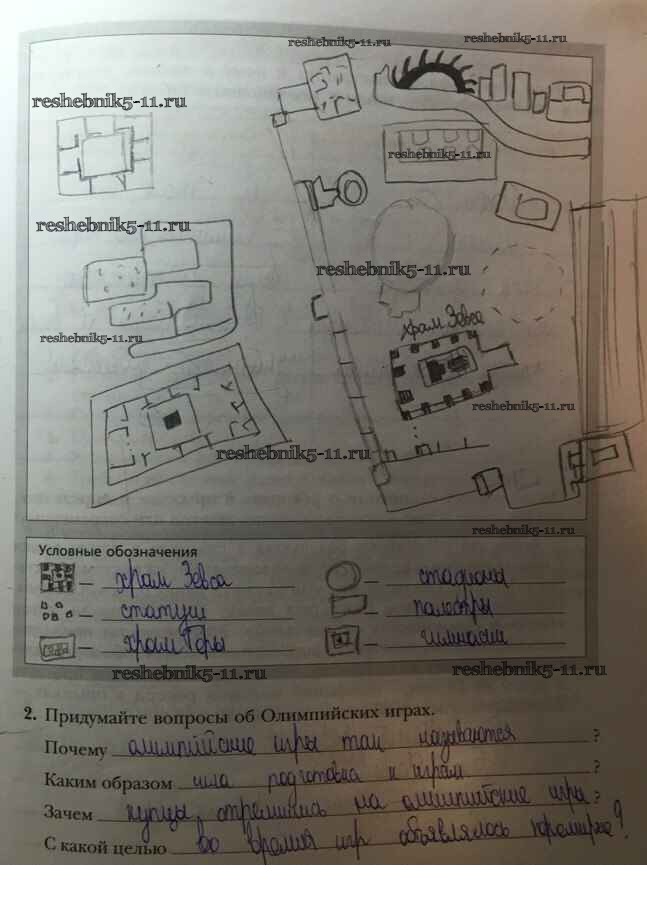 reshebnik5-11.ru
reshebnik5-11.ru
reshebnik5-11.ru
reshebnik5-11.ru
reshebnik5-11.ru
reshebnik5-11.ru
reshebnik5-11.ru
храм Зевса
reshebnik5-11.ru
reshebnik5-11.ru
reshebnik5-11.ru
Условные обозначения
– храм Зевса – стадионы
– статуи – палестры
– храм Геры – гимнасии
reshebnik5-11.ru reshebnik5-11.ru
2. Придумайте вопросы об Олимпийских играх.
Почему олимпийские игры так называются ?
Каким образом шла подготовка к играм ?
Зачем купцы стремились на олимпийские игры ?
С какой целью во время игр объявлялось перемирие?